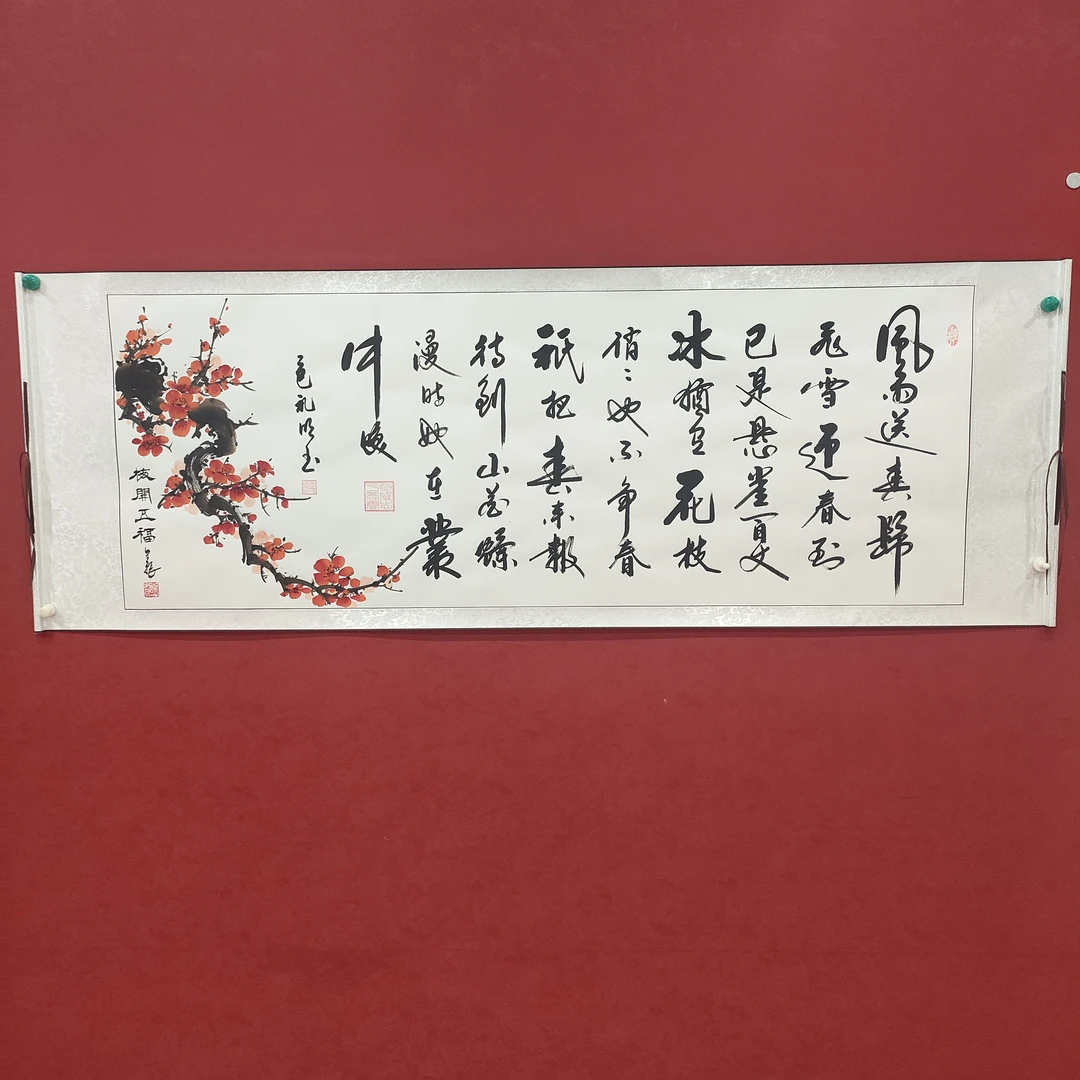 風雨送春歸
飛雪迎春到
已是懸崖百丈
冰猶有花枝
俏〻也不爭春
祇把春來報
待到山花爛
漫時她在叢
中笑
梅開五福